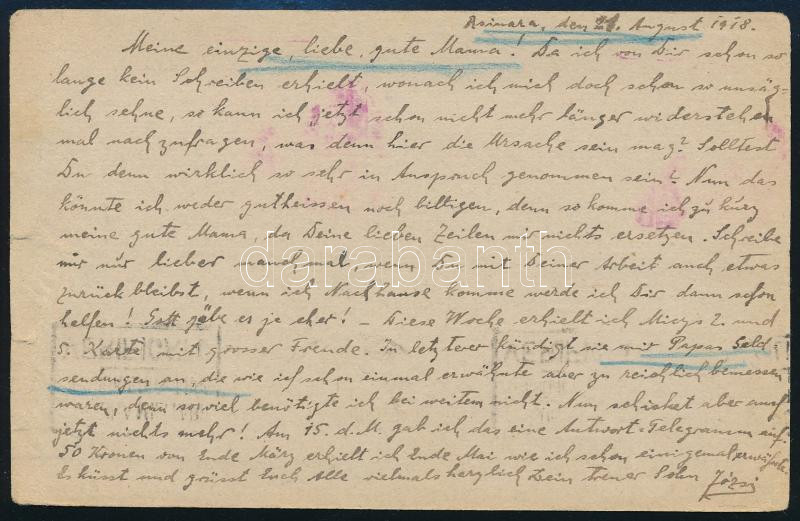 Asinara, den 21. August 1918.
Meine einzige, liebe, gute Mama! Da ich von Dir schon so
lange kein Schreiben erhielt, wonach ich mich doch schon so unsäg-
lich sehne, so kann ich jetzt schon nicht mehr länger widerstehen
mal nachzufragen, was denn hier die Ursache sein mag? Solltest
Du denn wirklich so sehr in Anspruch genommen sein? Nun das
könnte ich weder gutheissen noch billigen, denn so komme ich zu kurz
meine gute Mama, da Deine lieben Zeilen mir nichts ersetzen. Schreibe
mir nur lieber manchmal, wenn Du mit Deiner Arbeit auch etwas
zurück bleibst, wenn ich Nachhause komme werde ich Dir dann schon
helfen! Gott gäbe es je eher! – Diese Woche erhielt ich Micys 2. und
5. Karte mit grosser Freude. In letzterer kündigt sie mir Papas Geld-
sendungen an, die wie ich schon einmal erwähnte aber zu reichlich bemessen
waren, denn so viel benötigte ich bei weitem nicht. Nun schicket aber auf
jetzt nichts mehr! Am 15. d. M. gab ich das eine Antwort-Telegramm auf.
50 Kronen von Ende März erhielt ich Ende Mai wie ich schon einigemal erwähnte.
Es küsst und grüsst Euch Alle vielmals herzlich Dein treuer Sohn Józsi
darabanth